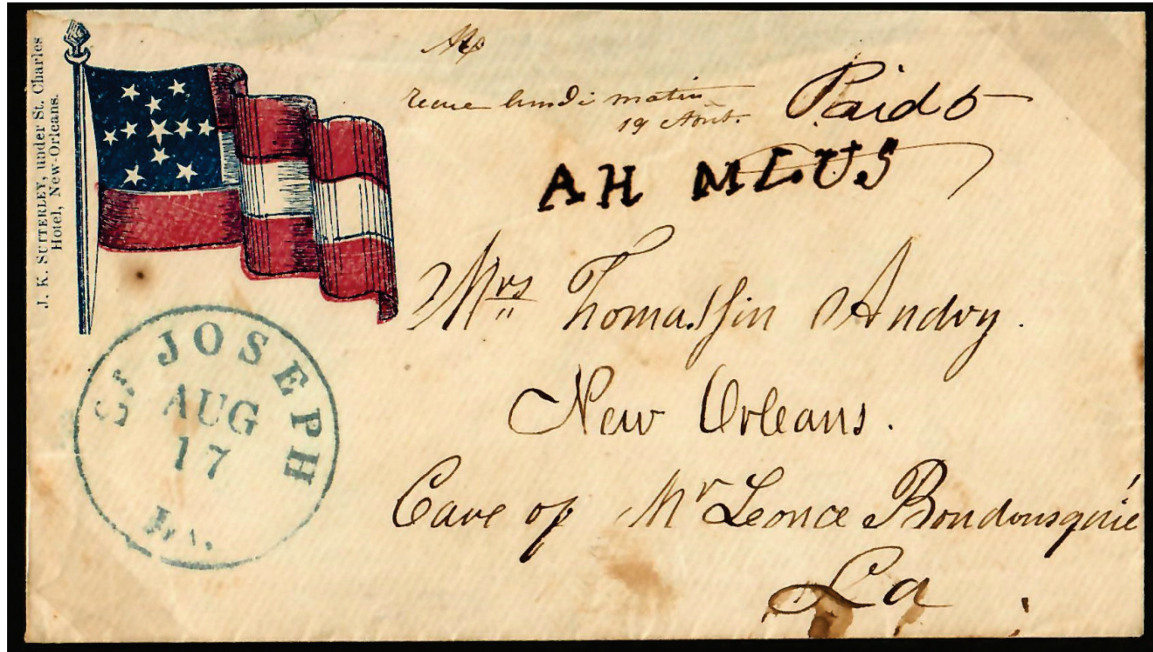 J. K. SUTTERLEY, under St. Charles
Hotel, New-Orleans.
recue lundi matin
19 Août
Paid 5
AH MLUS
Mrs Thomassin Andry.
New Orleans.
Care of Mr Leonce Boudousquié
La
ST JOSEPH
AUG
17
LA.